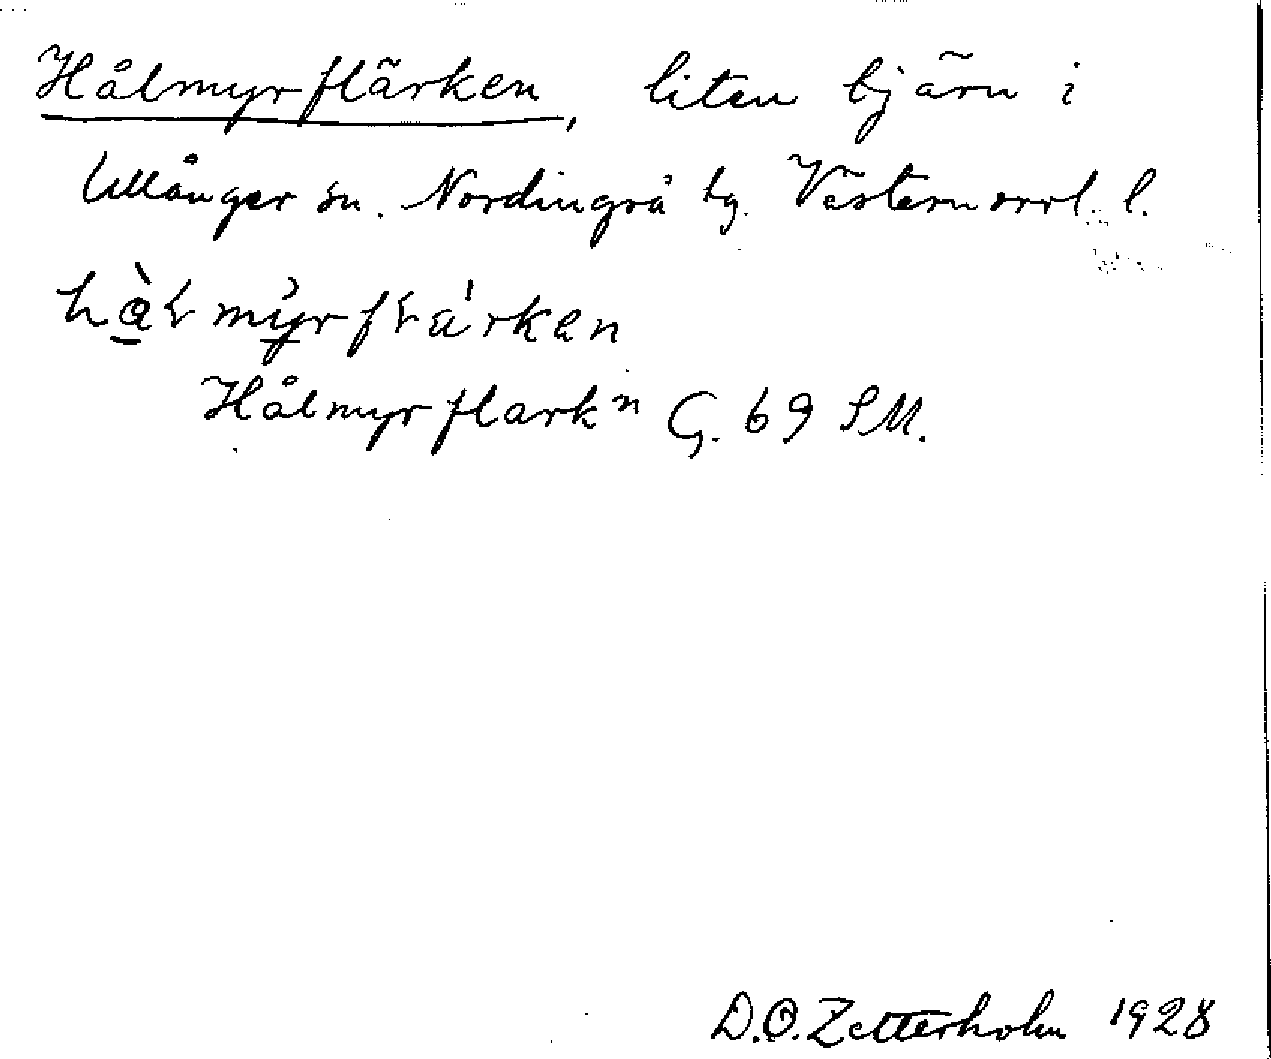 Hålmyrflärken, liten tjärn i
Ullånger sn. Nordingrå tg. Västernorrl. l.
hàlmy̆rflä́rken
Hålmyrflarkn G. 69 SM.
D.O. Zetterholm 1928